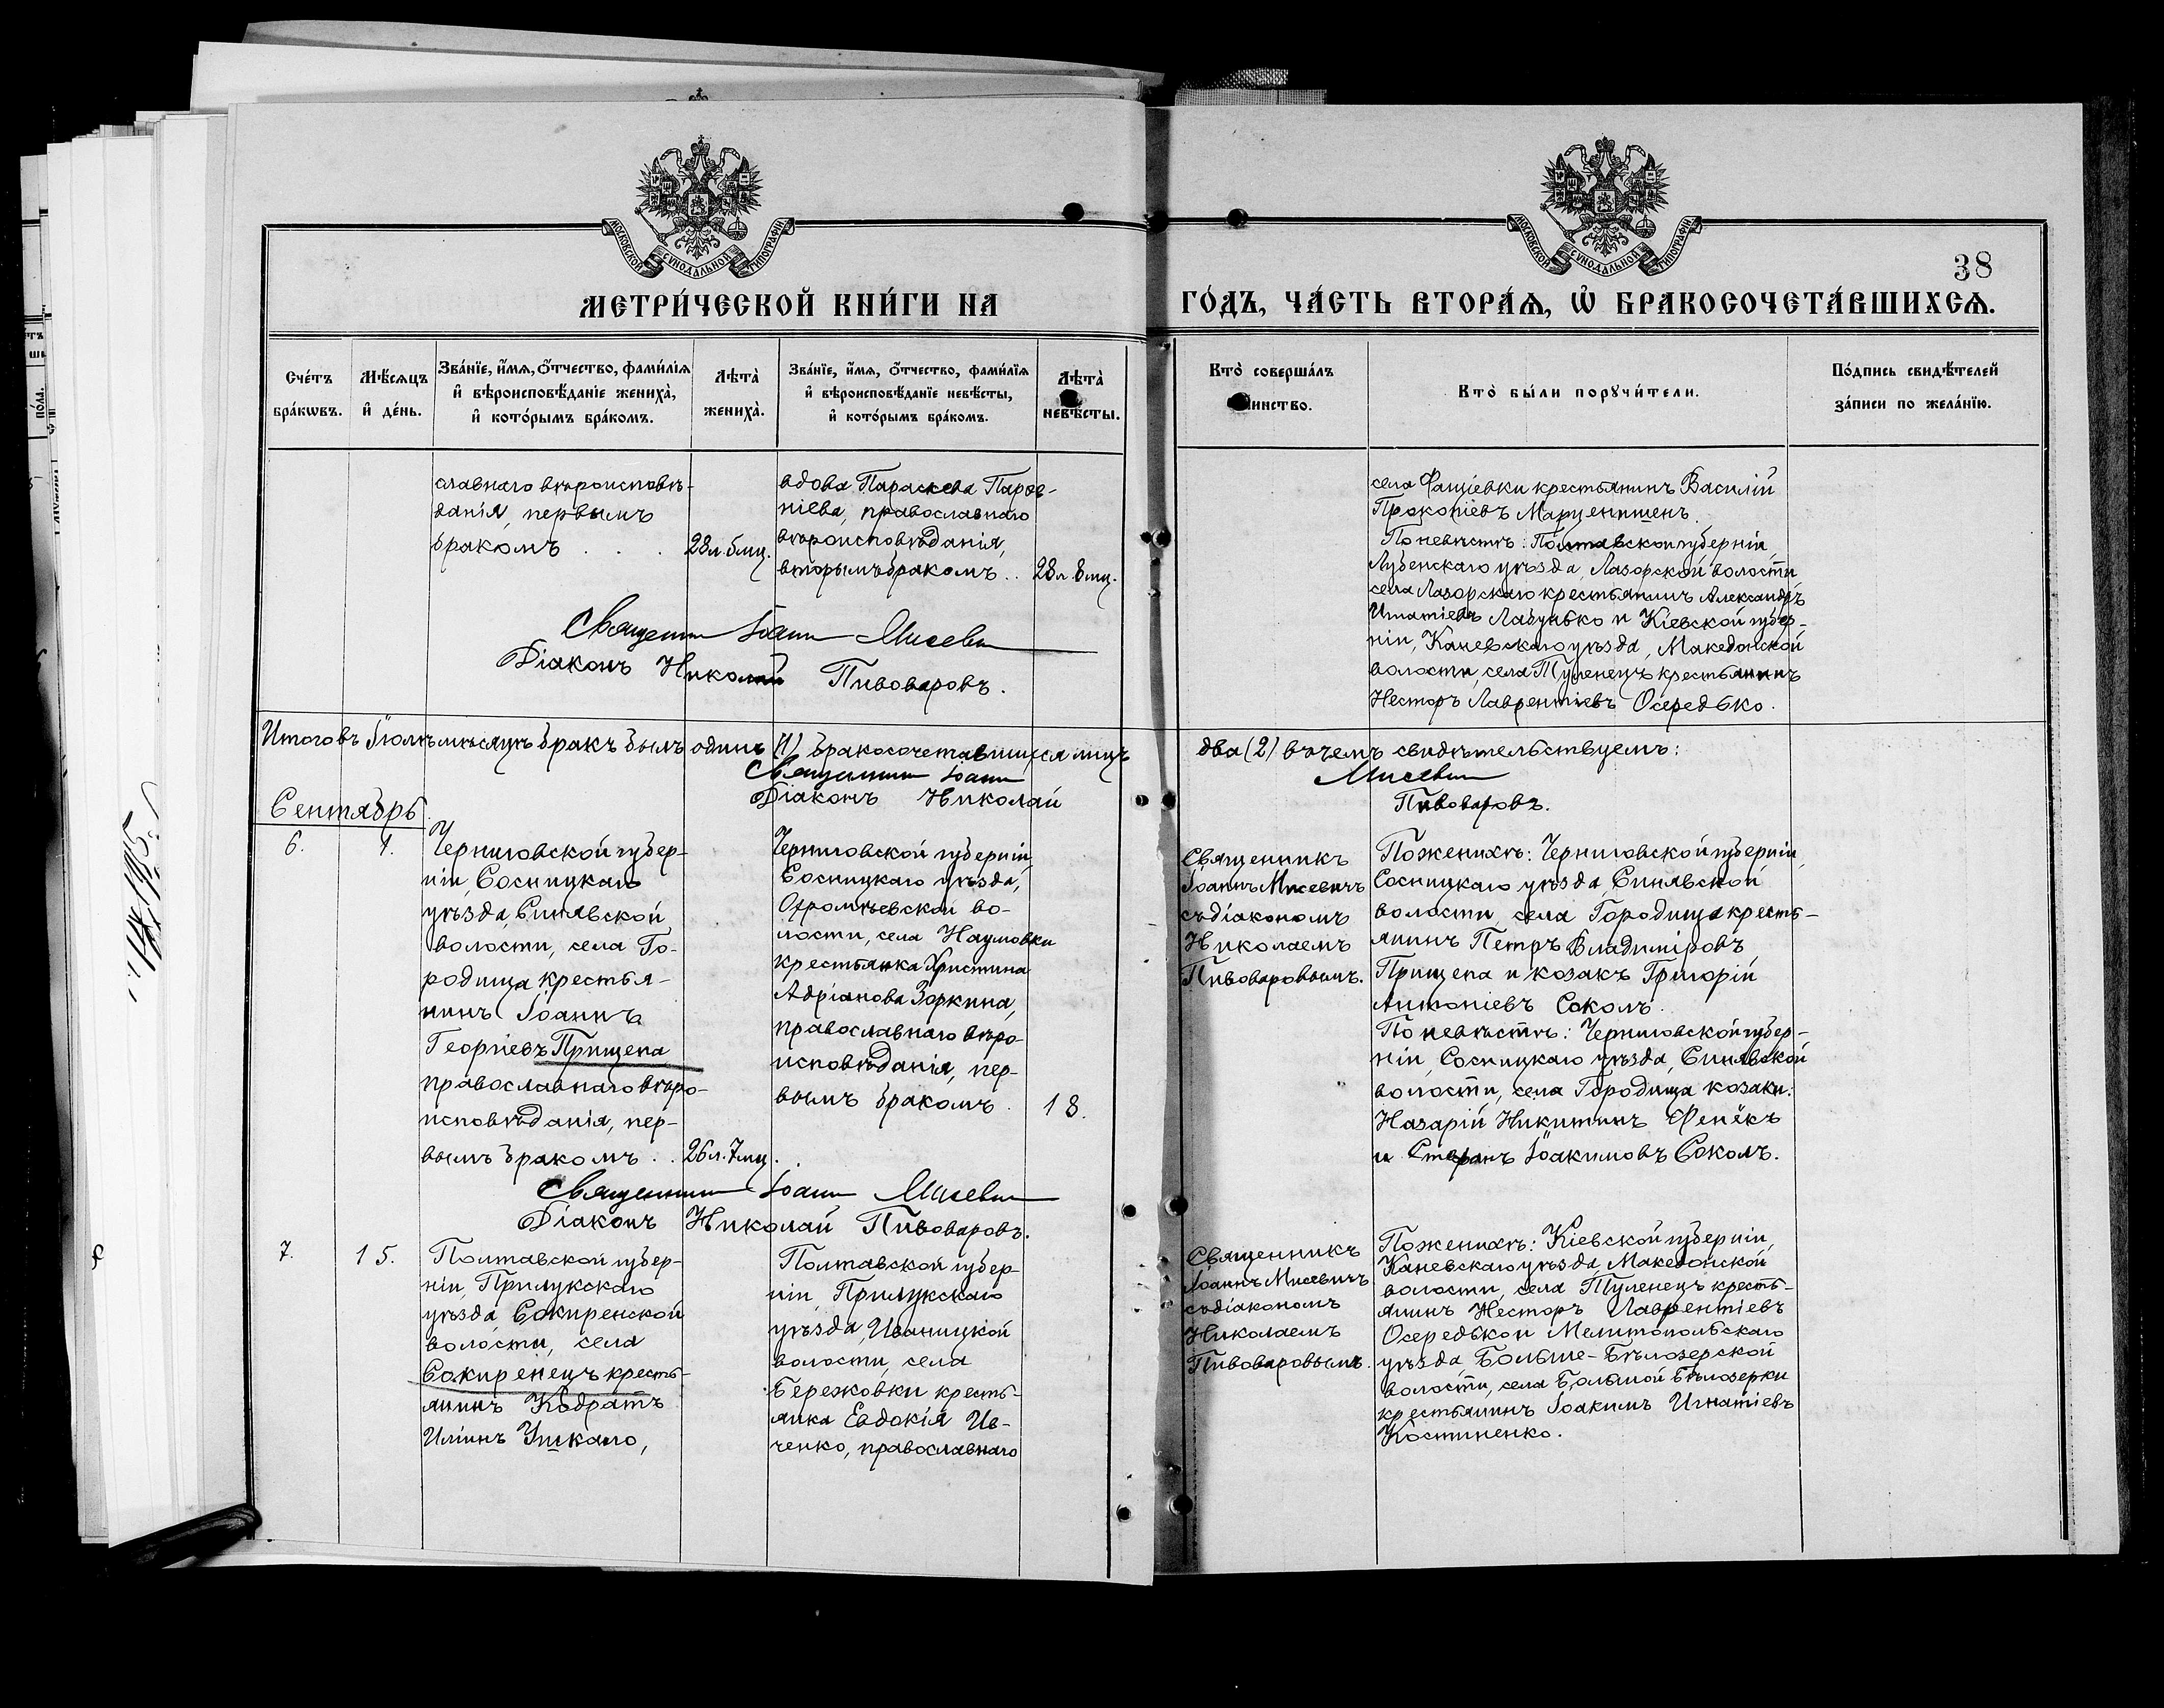 38
МЕТРИ́ЧЕСКОЙ КНИ́ГИ НА ГО́ДЪ, ЧА́СТЬ ВТОРА́Ѧ, Ѡ҆ БРАКОСОЧЕТА́ВШИХСѦ.
МОСКОВСКОЙ СѴНОДАЛЬНОЙ ТИПОГРАФІИ
МОСКОВСКОЙ СѴНОДАЛЬНОЙ ТИПОГРАФІИ
Сче́тъ
бра́кωвъ.
Мѣ́сяцъ
и҆ де́нь.
Зва́нїе, и҆́мя, ѻ҆́тчество, фами́лїя
и҆ вѣроисповѣ́данїе жениха̀,
и҆ кото́рымъ бра́комъ.
Лѣта̀
жениха̀.
Зва́нїе, и҆́мя, ѻ҆́тчество, фами́лїя
и҆ вѣроисповѣ́данїе невѣ́сты,
и҆ кото́рымъ бра́комъ.
Лѣта̀
невѣ́сты.
Кто̀ соверша́лъ
инство.
Кто̀ бы́ли порꙋчи́тели.
По́дпись свидѣ́телей
за́писи по жела́нїю.
славнаго вѣроисповѣ-
данія, первымъ
бракомъ . . . 28 л. 5 мц.
вдова Параскева Парѳе-
ніева, православнаго
вѣроисповѣданія,
вторымъ бракомъ . . 28 л. 8 мц.
села Фащіевки крестьянинъ Василій
Прокопіевъ Марценишенъ.
По невѣстѣ: Полтавской губерніи,
Лубенскаго уѣзда, Лазорской волости
села Лазорскаго крестьянинъ Александръ
Игнатіевъ и Кіевской губер-
ніи, Каневскаго уѣзда, Македонской
волости, села Туленецъ крестьянинъ
Несторъ Лаврентіевъ Осередько.
Священник Іоанн Мисевич
Діаконъ Николай Пивоваровъ.
Итого въ Іюлѣ мѣсяцѣ бракъ былъ одинъ (1) бракосочетавшихся лицъ два (2) въ чемъ свидѣтельствуемъ:
Священник Іоанн Мисевич
Діаконъ Николай Пивоваровъ.
Сентябрь
6. 1.
Черниговской губер-
ніи, Сосницкаго
уѣзда, Синявской
волости, села Го-
родища крестья-
нинъ Іоаннъ
Георгіевъ Прищепа
православнаго вѣро-
исповѣданія, пер-
вымъ бракомъ . . 26 л. 7 мц.
Черниговской губерніи,
Сосницкаго уѣзда,
во-
лости, села Наумовки
крестьянка Христина
Адріанова Зоркина,
православнаго вѣро-
исповѣданія, пер-
вымъ бракомъ . 18.
Священникъ
Іоаннъ Мисевичъ
съ діакономъ
Николаемъ
Пивоваровымъ.
По женихѣ: Черниговской губерніи,
Сосницкаго уѣзда, Синявской
волости, села Городища кресть-
янинъ Петръ Владиміровъ
Прищепа и козакъ Григорій
Антоніевъ Соколъ.
По невѣстѣ: Черниговской губер-
ніи, Сосницкаго уѣзда, Синявской
волости, села Городища козаки:
Назарій Никитинъ Фенёкъ
и Стефанъ Іоакимовъ Соколъ.
Священник Іоанн Мисевич
Діаконъ Николай Пивоваровъ.
7. 15.
Полтавской губер-
ніи, Прилукскаго
уѣзда, Сокиренской
волости, села
Сокиренецъ кресть-
янинъ Кодратъ
Иліинъ Ушкало,
Полтавской губер-
ніи, Прилукскаго
уѣзда, Иваницкой
волости, села
Бережовки кресть-
янка Евдокія Ив-
ченко, православнаго
Священникъ
Іоаннъ Мисевичъ
съ діакономъ
Николаемъ
Пивоваровымъ.
По женихѣ: Кіевской губерніи,
Каневскаго уѣзда, Македонской
волости, села Туленецъ кресть-
янинъ Несторъ Лаврентіевъ
Осередько и Мелитопольскаго
уѣзда, Больше-Бѣлозерской
волости, села Большой Бѣлозерки
крестьянинъ Іоакимъ Игнатіевъ
Костиненко.